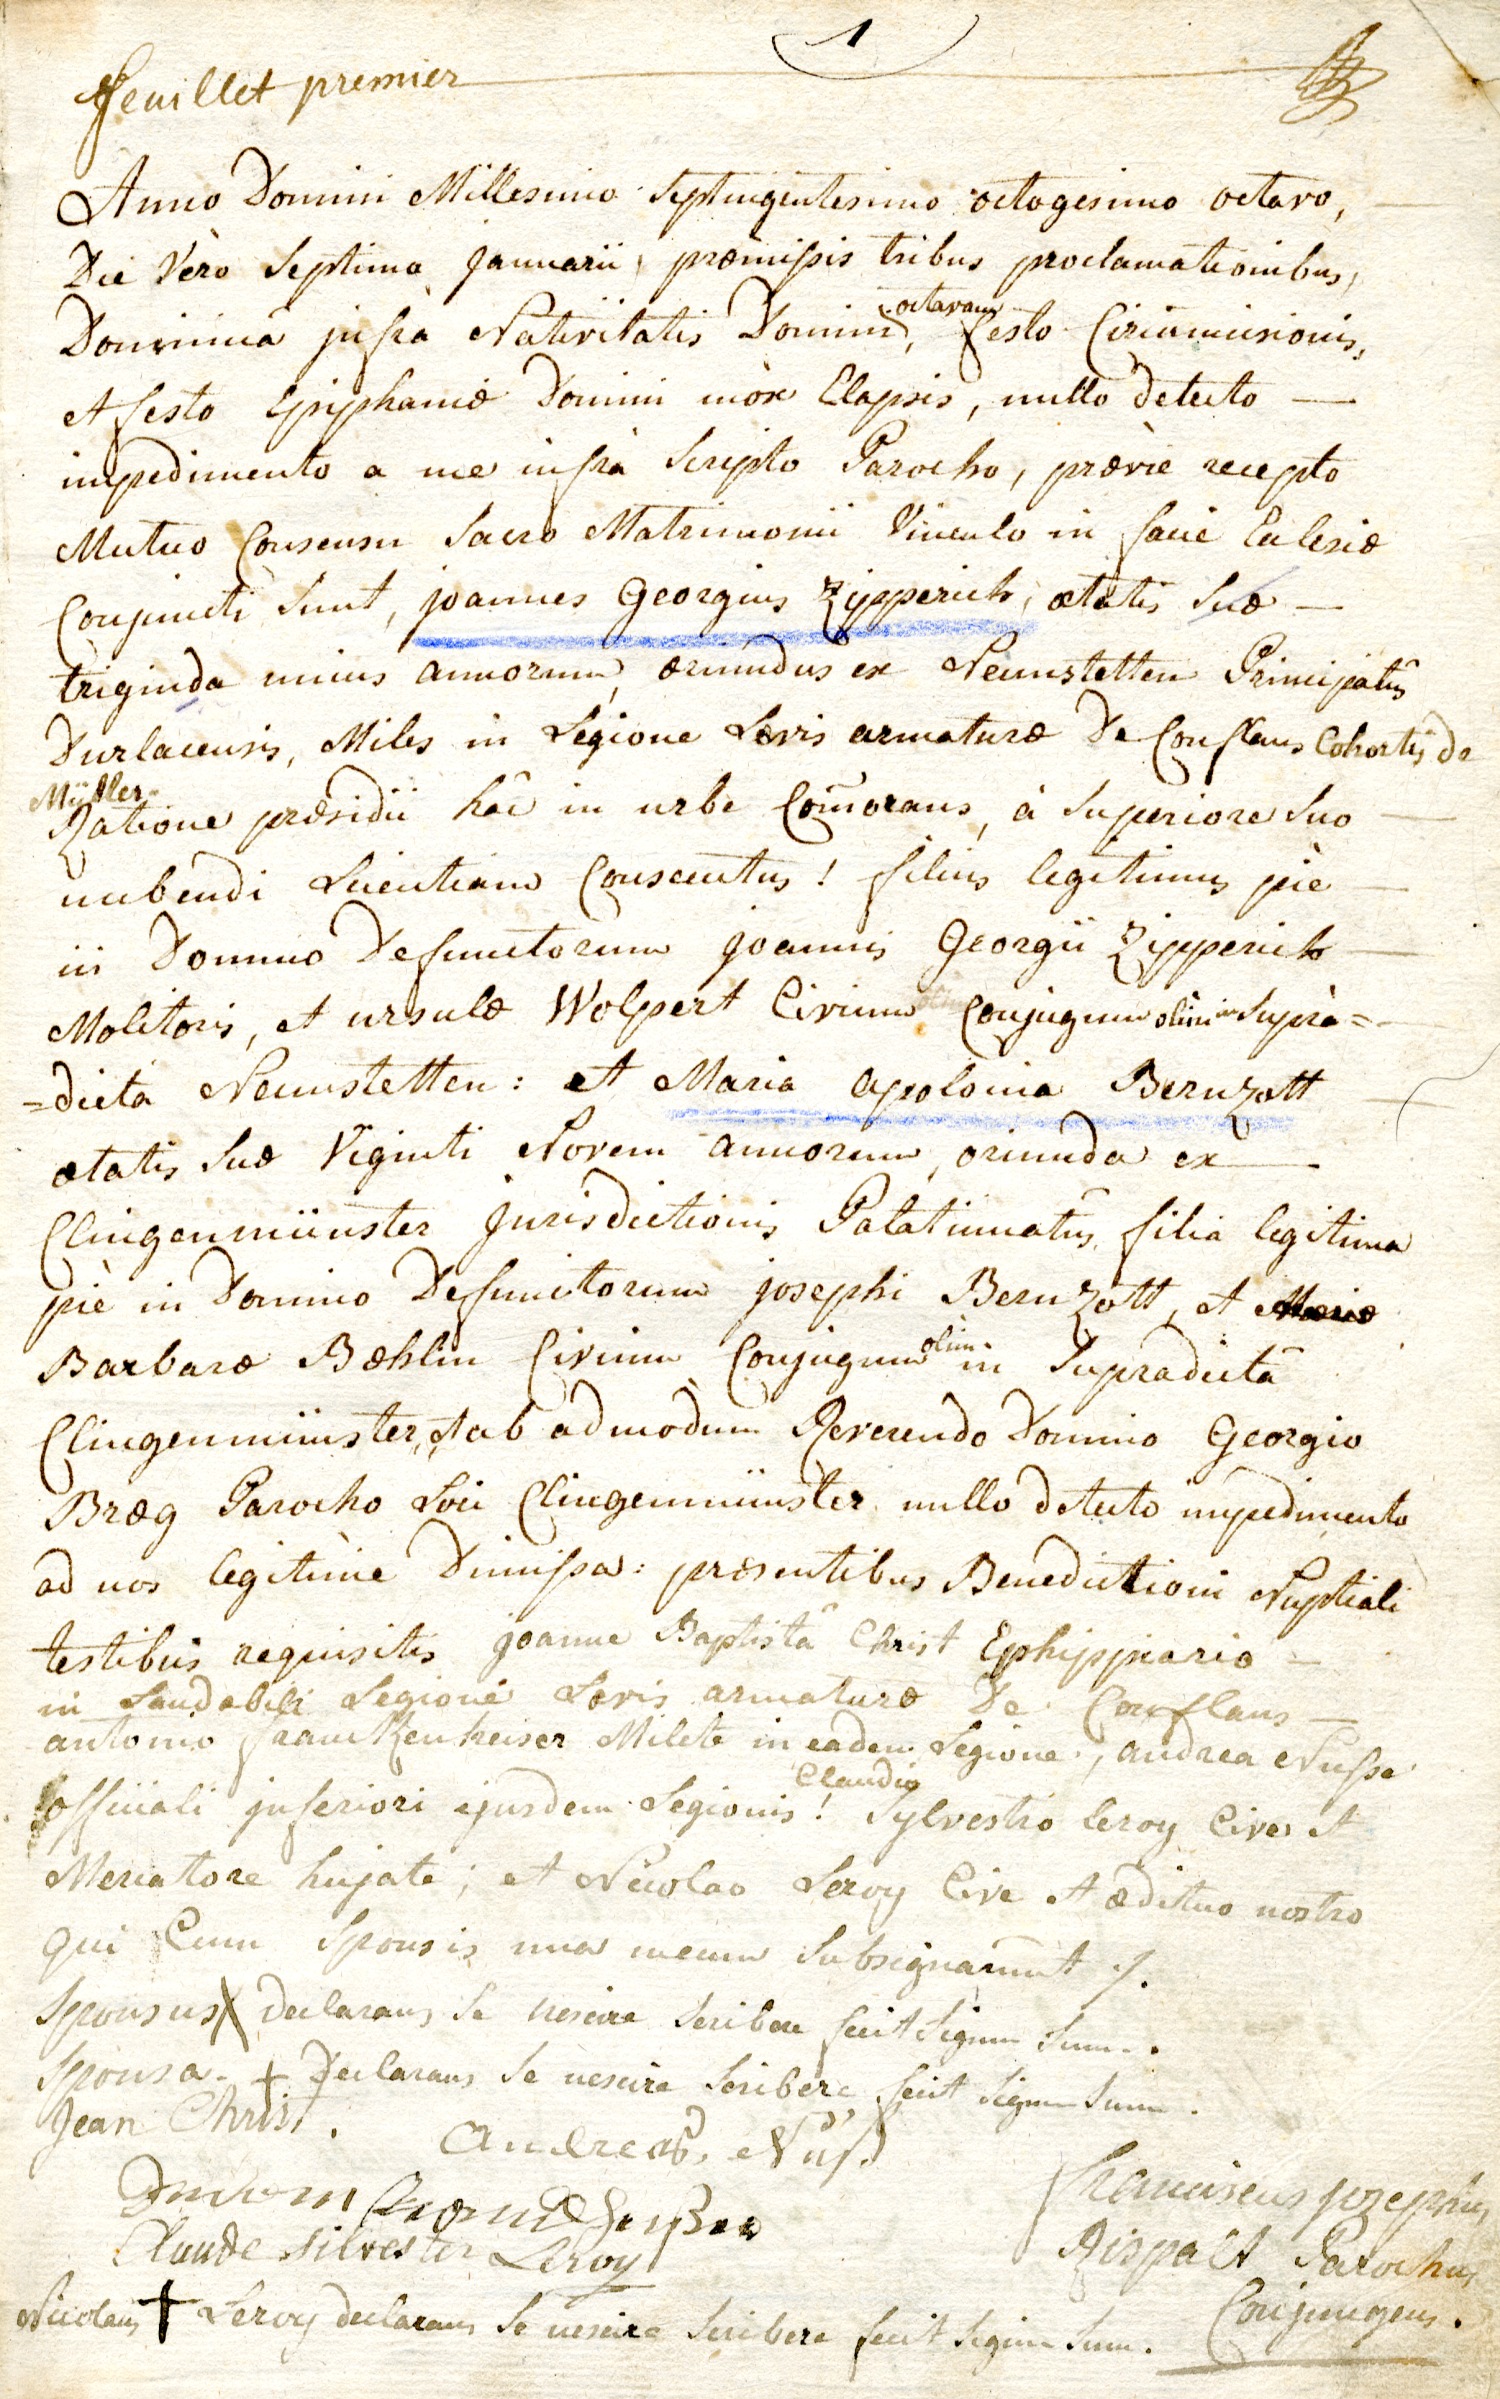 1
feuillet premier
Anno Domini Millesimo Septingentesimo octogesimo octavo,
Die Vero Septima Januarii, præmissis tribus proclamationibus,
Dominica infra Nativitatis Domini, octavam festo Circumcisionis,
et festo Epiphaniæ Domini mox Elapsis, nullo detecto
impedimento a me infrà Scripto Parocho, prævie recepto
Mutuo Consensu Sacro Matrimonii Vinculo in facie Eclesiæ
Conjuncti Sunt, joannes Georgius Zipperich, ætatis Suæ
triginda unius annorum, oriundus ex Neunstetten Principatûs
Durlacensis, Miles in Legione Levis armaturæ De Conflans Cohortis de
Müller
Ratione præsidii hâc in urbe Com̃orans, à Superiore Suo
nubendi Licentiam Consecutus! filius legitimus piè
in Domino Defunctorum joannis Georgii Zipperich
Molitoris, et ursulæ Wolpert Civium Conjugum olim in Suprà=
=dicta Neunstetten: et Maria apolonia Bernzott
ætatis Suæ Viginti Novem annorum, oriunda ex
Clingenmünster Jurisdictionis Palatinatûs, filia legitima
piè in Domino Defunctorum josephi Bernzott, et Mariæ
Barbaræ Bæhlin Civium Conjugum olim in Supradictâ
Clingenmünster, et ab admodum Reverendo Domino Georgio
Bræg Parocho Loci Clingenmünster nullo detecto impedimento
ad nos legitime Dimissa: præsentibus Benedictioni Nuptiali
testibus requisitis joanne Baptistâ Christ Ephippiario
in Laudabili Legione Levis armaturæ De Conflans
antonio frantzenheiser Milite in eadem Legione, andrea Nuss
officiali inferiori ejusdem Legionis! Claudio Sylvestro leroy Cive et
Mercatore hujate; et Nicolao Leroy Cive et ædituo nostro
qui Cum Sponsis una mecum Subsignârunt ./.
Sponsus X declarans Se nescire Scribere fecit Signum Suum.
Sponsa + Declarans Se nescire Scribere fecit Signum Suum.
Jean Christ.
Andreas Nüss
Claude silvester Leroy
franciscus josephus
Rispalt Parochus
Conjungens.
Nicolaus + Leroy declarans Se nescire Scribere fecit Signum Suum.